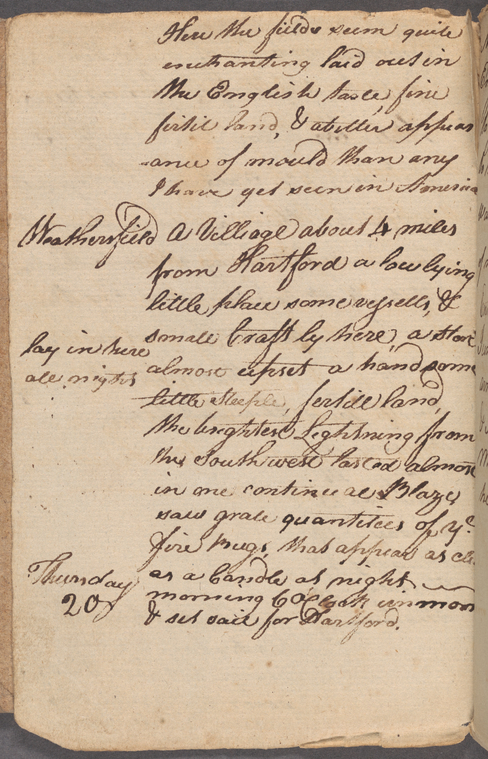 Here the fields seem quite
enchanting laid out in
the English taste, fine
fertil land, & a better appear
ance of mould than any
I have yet seen in America
Weathersfield A Villiage about 4 miles
from Hartford a low lying
little place some vessells, &
small Craft ly here, a store
lay in here
all night
almost upset a handsome
little steeple, fertill land,
the brightest Lightning from
the Southwest lasted almost
in one continueal Blaze
saw grate quantitees of ye
fire Bugs, that appear as cle
Thursday
20
as a Candle at night
morning 6 oClock unmoor
& set sail for Hartford.